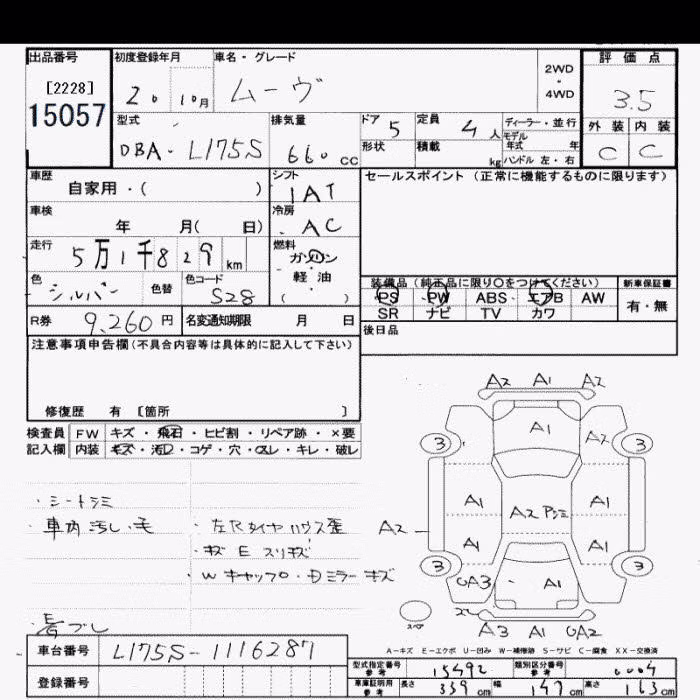 出品番号 初度登録年月 車名・グレード 2WD・4WD 評価点
[2228]
15057
20 10月 ムーヴ 3.5
型式 排気量 ドア 5 定員 4人 ディーラー・並行 外装 内装
モデル年式 年
DBA-L175S 660cc 形状 積載 kg ハンドル 左・右 C C
車歴 シフト セールスポイント(正常に機能するものに限ります)
自家用・( ) IAT
車検 冷房
年 月( 日) AC
走行 燃料
5万1千829km ガソリン・軽油
( )
色 色替 色コード 装備品(純正品に限り○をつけてください) 新車保証書
シルバー S28 PS PW ABS エアB AW 有・無
SR ナビ TV カワ
R券 9,260円 名変通知期限 月 日 後日品
注意事項申告欄(不具合内容等は具体的に記入して下さい)
修復歴 有 [箇所 ]
検査員 FW キズ・飛石・ヒビ割・リペア跡・×要
記入欄 内装 キズ・汚レ・コゲ・穴・スレ・キレ・破レ
A2 A1 A2
A1 A2
3 3
A1 A1
A2 A2 A1
A1
3 3
A3 A1
スペア
A3 A1 A2
・シートシミ
・車内汚し、毛 ・左Rタイヤハウス歪
・キズ E スリキズ
・Wキャップ・Dミラーキズ
A-キズ E-エクボ U-凹み W-補修跡 S-サビ C-腐食 XX-交換済
車台番号 L175S-1116287
型式指定番号 参考 15492 類別区分番号 参考 0004
登録番号 車庫証明用 参考 長さ 339cm 幅 147cm 高さ 163cm